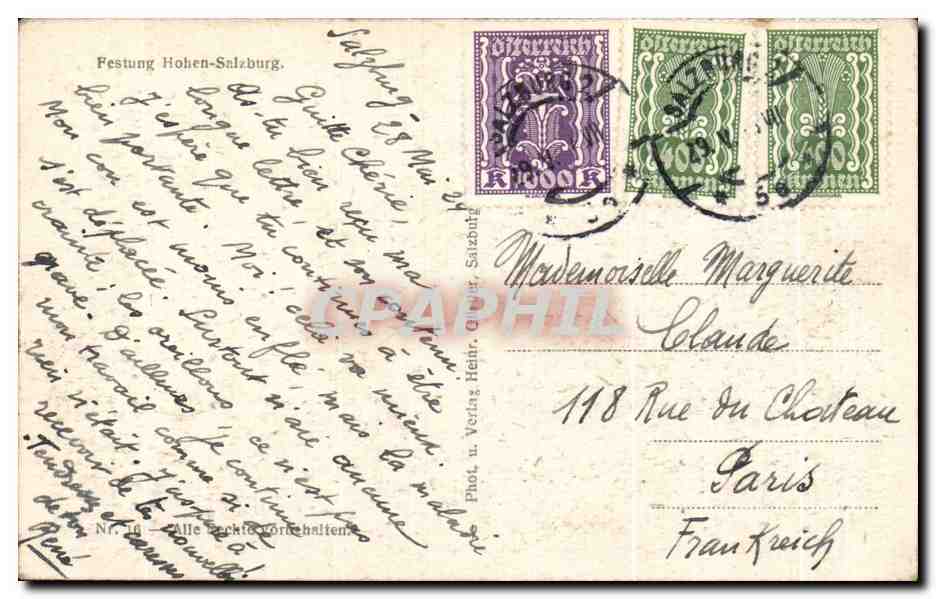 Festung Hohen-Salzburg.
Salzburg 28 Mai
Guitte Chérie,
As-tu bien reçu ma dernière
longue lettre, et son contenu
J'espère que tu continues à être
bien portante. Moi, cela va mieux.
Mon cou est moins enflé, mais la mâchoire
s'est déplacée. Surtout n'aie aucune
crainte, les oreillons, ce n'est pas
grave. D'ailleurs je continue
mon travail comme si
rien n'était. J'espère
recevoir de tes nouvelles.
Tendresses et caresses
de ton
René
Nr. 16 — Alle Rechte vorbehalten.
Phot. u. Verlag Heinr. Salzburg
österreich
K 1000 K
österreich
400
Kronen
österreich
400
Kronen
SALZBURG 2
SALZBURG 2
29.V
Mademoiselle Marguerite
Claude
118 Rue du Chateau
Paris
Frankreich
CPAPHIL